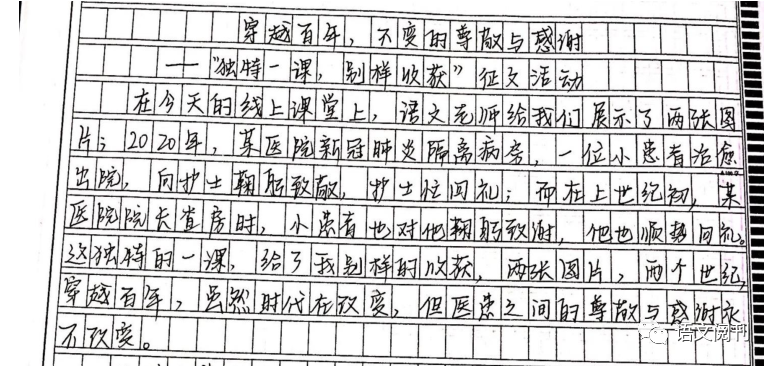 穿越百年，不变的尊敬与感谢
——"独特一课，别样收获"征文活动
在今天的线上课堂上，语文老师给我们展示了两张图
片：2020年，某医院新冠肺炎隔离病房，一位小患者治愈
出院，向护士鞠躬致敬，护士位回礼；而在上世纪初，某
医院院长查房时，小患者也对他鞠躬致谢，他也顺势回礼。
这独特的一课，给了我别样的收获，两张图片，两个世纪，
穿越百年，虽然时代在改变，但医患之间的尊敬与感谢永
不改变。
语文阅刊